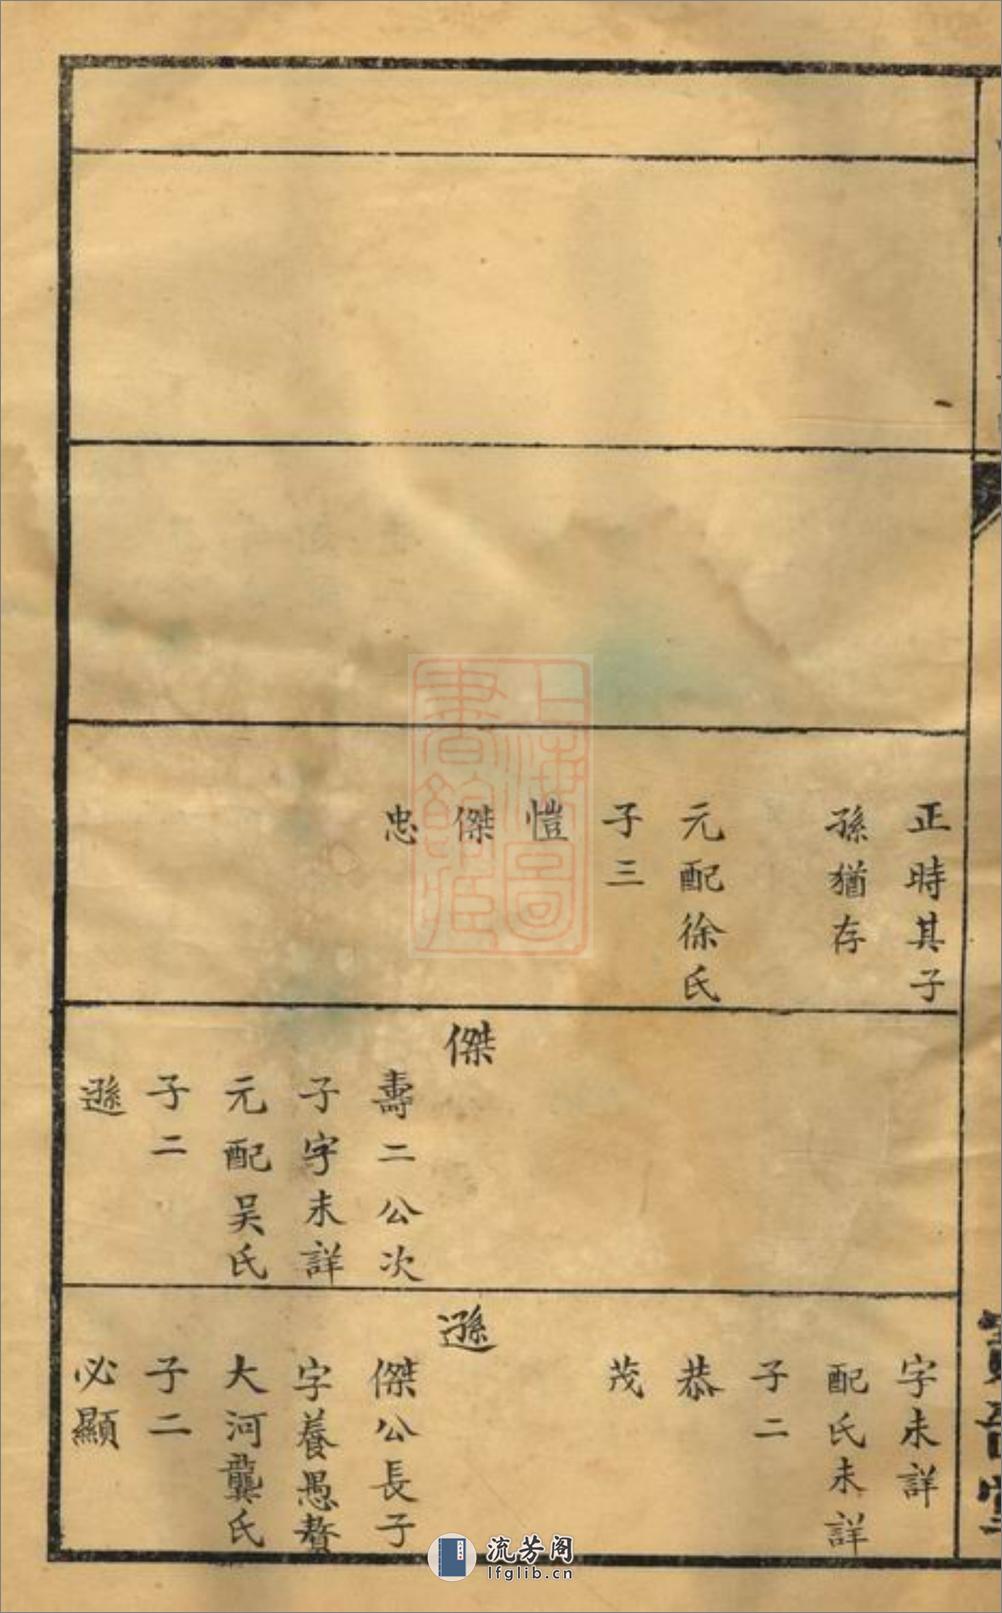 正時其子
孫猶存
元配徐氏
子三
愷
傑
忠
傑
壽二公次
子字未詳
元配吴氏
子二
遜
字未詳
配氏未詳
子二
恭
茂
遜
傑公長子
字養愚贅
大河龔氏
子二
必顯
上海圖
書館藏
流芳阁
lfglib.cn